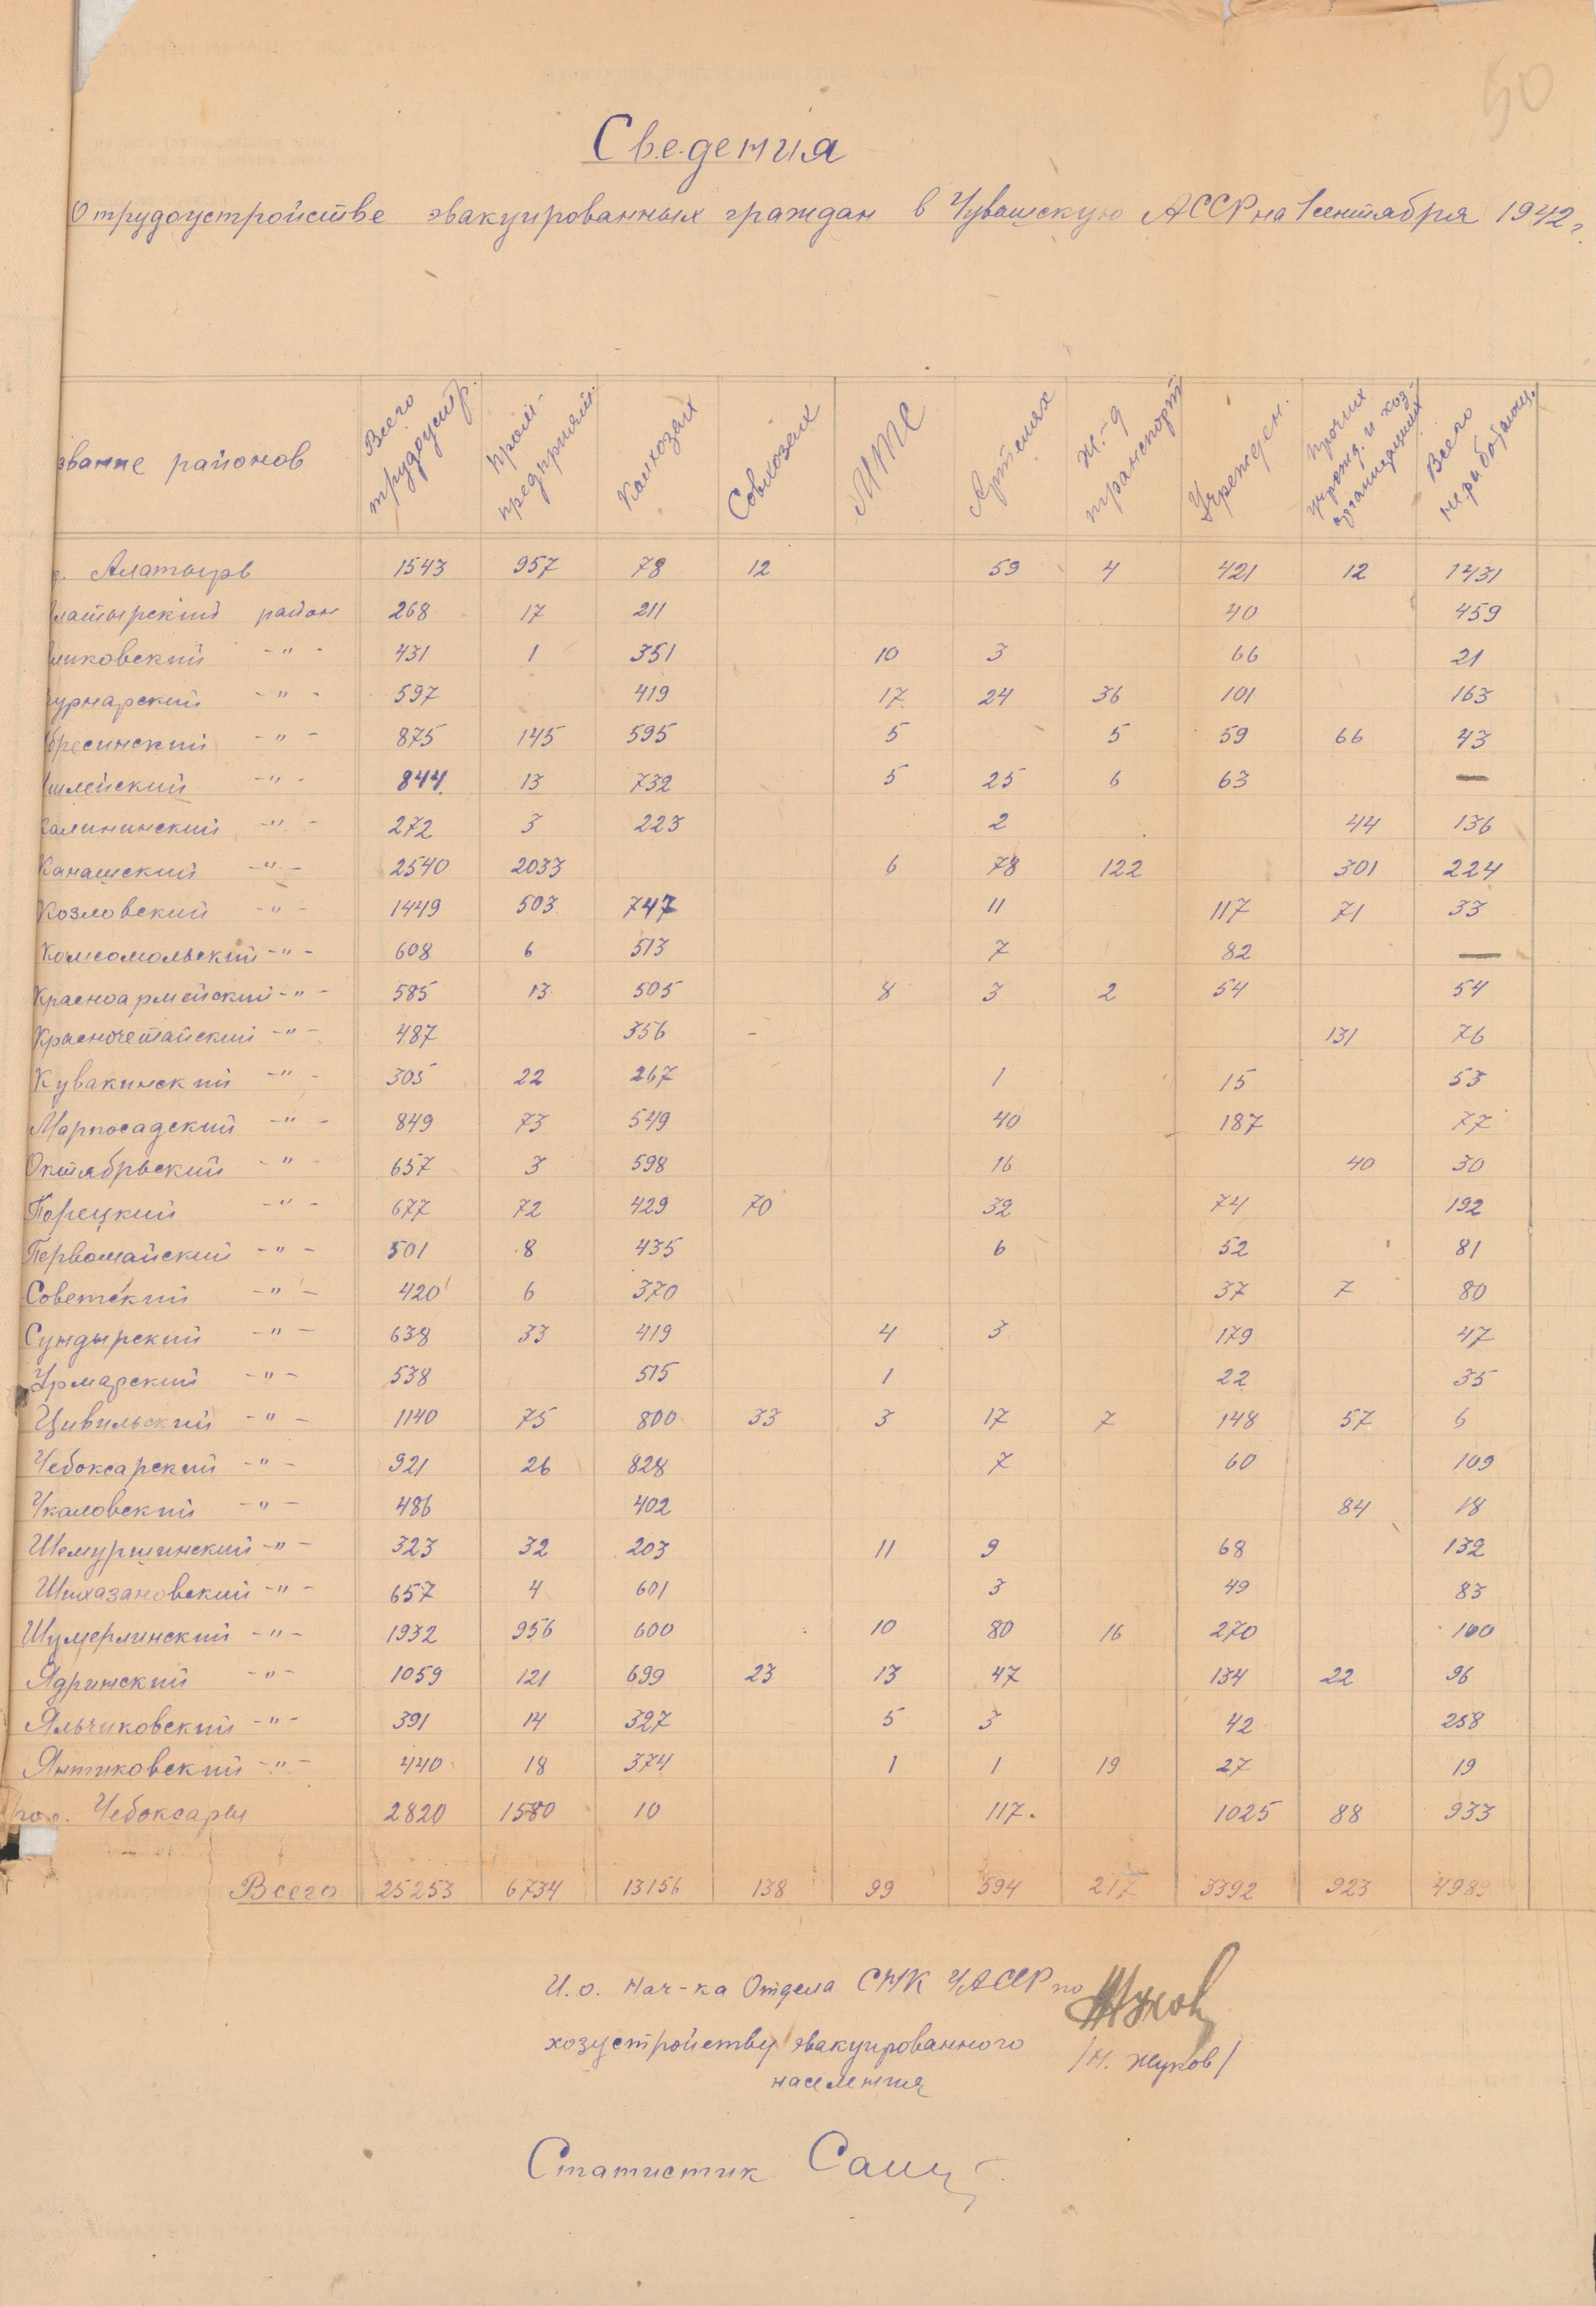 50
Сведения
О трудоустройстве эвакуированных граждан в Чувашскую АССР на 1 сентября 1942 г.
звание районов | Всего трудоустр. | Пром-предприят. | Колхозах | Совхозах | МТС | Артелях | Ж.-д транспорт | Учрежден. | Прочих учрежд. и хоз-организациях | Всего не работающ.
г. Алатырь 1543 957 78 12 59 4 421 12 1431
латырский район 268 17 211 40 459
ликовский -"- 431 1 351 10 3 66 21
урнарский -"- 597 419 17 24 36 101 163
бресинский -"- 875 145 595 5 5 59 66 43
шлейский -"- 844 13 732 5 25 6 63 —
Калининский -"- 272 3 223 2 44 136
Канашский -"- 2540 2033 6 78 122 301 224
Козловский -"- 1449 503 747 11 117 71 33
Комсомольский -"- 608 6 513 7 82 —
Красноармейский -"- 585 13 505 8 3 2 54 54
Красночетайский -"- 487 356 - 131 76
Кувакинский -"- 305 22 267 1 15 53
Марпосадский -"- 849 73 549 40 187 77
Октябрьский -"- 657 3 598 16 40 30
Порецкий -"- 677 72 429 70 32 74 192
Первомайский -"- 501 8 435 6 52 81
Советский -"- 420 6 370 37 7 80
Сундырский -"- 638 33 419 4 3 179 47
Урмарский -"- 538 515 1 22 35
Цивильский -"- 1140 75 800 33 3 17 7 148 57 6
Чебоксарский -"- 921 26 828 7 60 109
Чкаловский -"- 486 402 84 18
Шемуршинский -"- 323 32 203 11 9 68 132
Шихазановский -"- 657 4 601 3 49 83
Шумерлинский -"- 1932 956 600 10 80 16 270 100
Ядринский -"- 1059 121 699 23 13 47 134 22 96
Яльчиковский -"- 391 14 327 5 3 42 258
Янтиковский -"- 440 18 374 1 1 19 27 19
гор. Чебоксары 2820 1580 10 117. 1025 88 933
Всего 25253 6734 13156 138 99 594 217 3392 923 4989
И.о. Нач-ка Отдела СНК ЧАССР по
хозустройству эвакуированного
населения
Жуков
/Н. Жуков/
Статистик